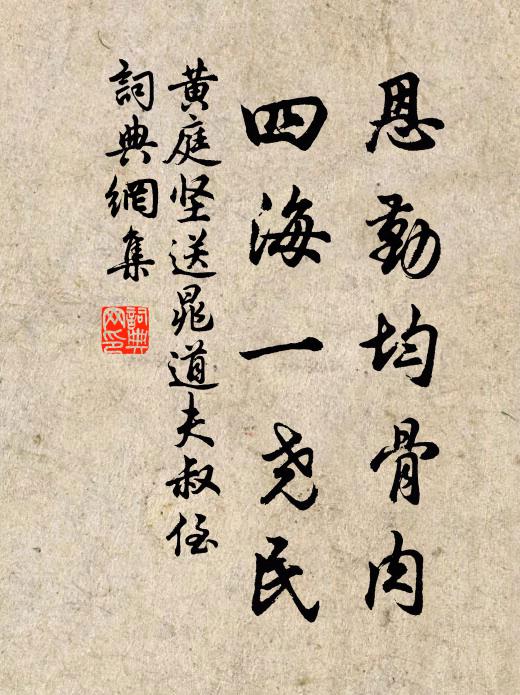 恩勤均骨肉
四海一尧民
黄庭坚送晁道夫叔侄
詞典網集
詞典
网印